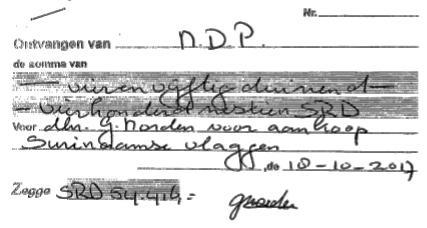 Nr.
Ontvangen van N.D.P.
de somma van
vierenvijftig duizend
vierhonderd zestien SRD
Voor dhr. G. Norden voor aankoop
Surinaamse vlaggen
,de 18-10-2017
Zegge SRD 54.416 =